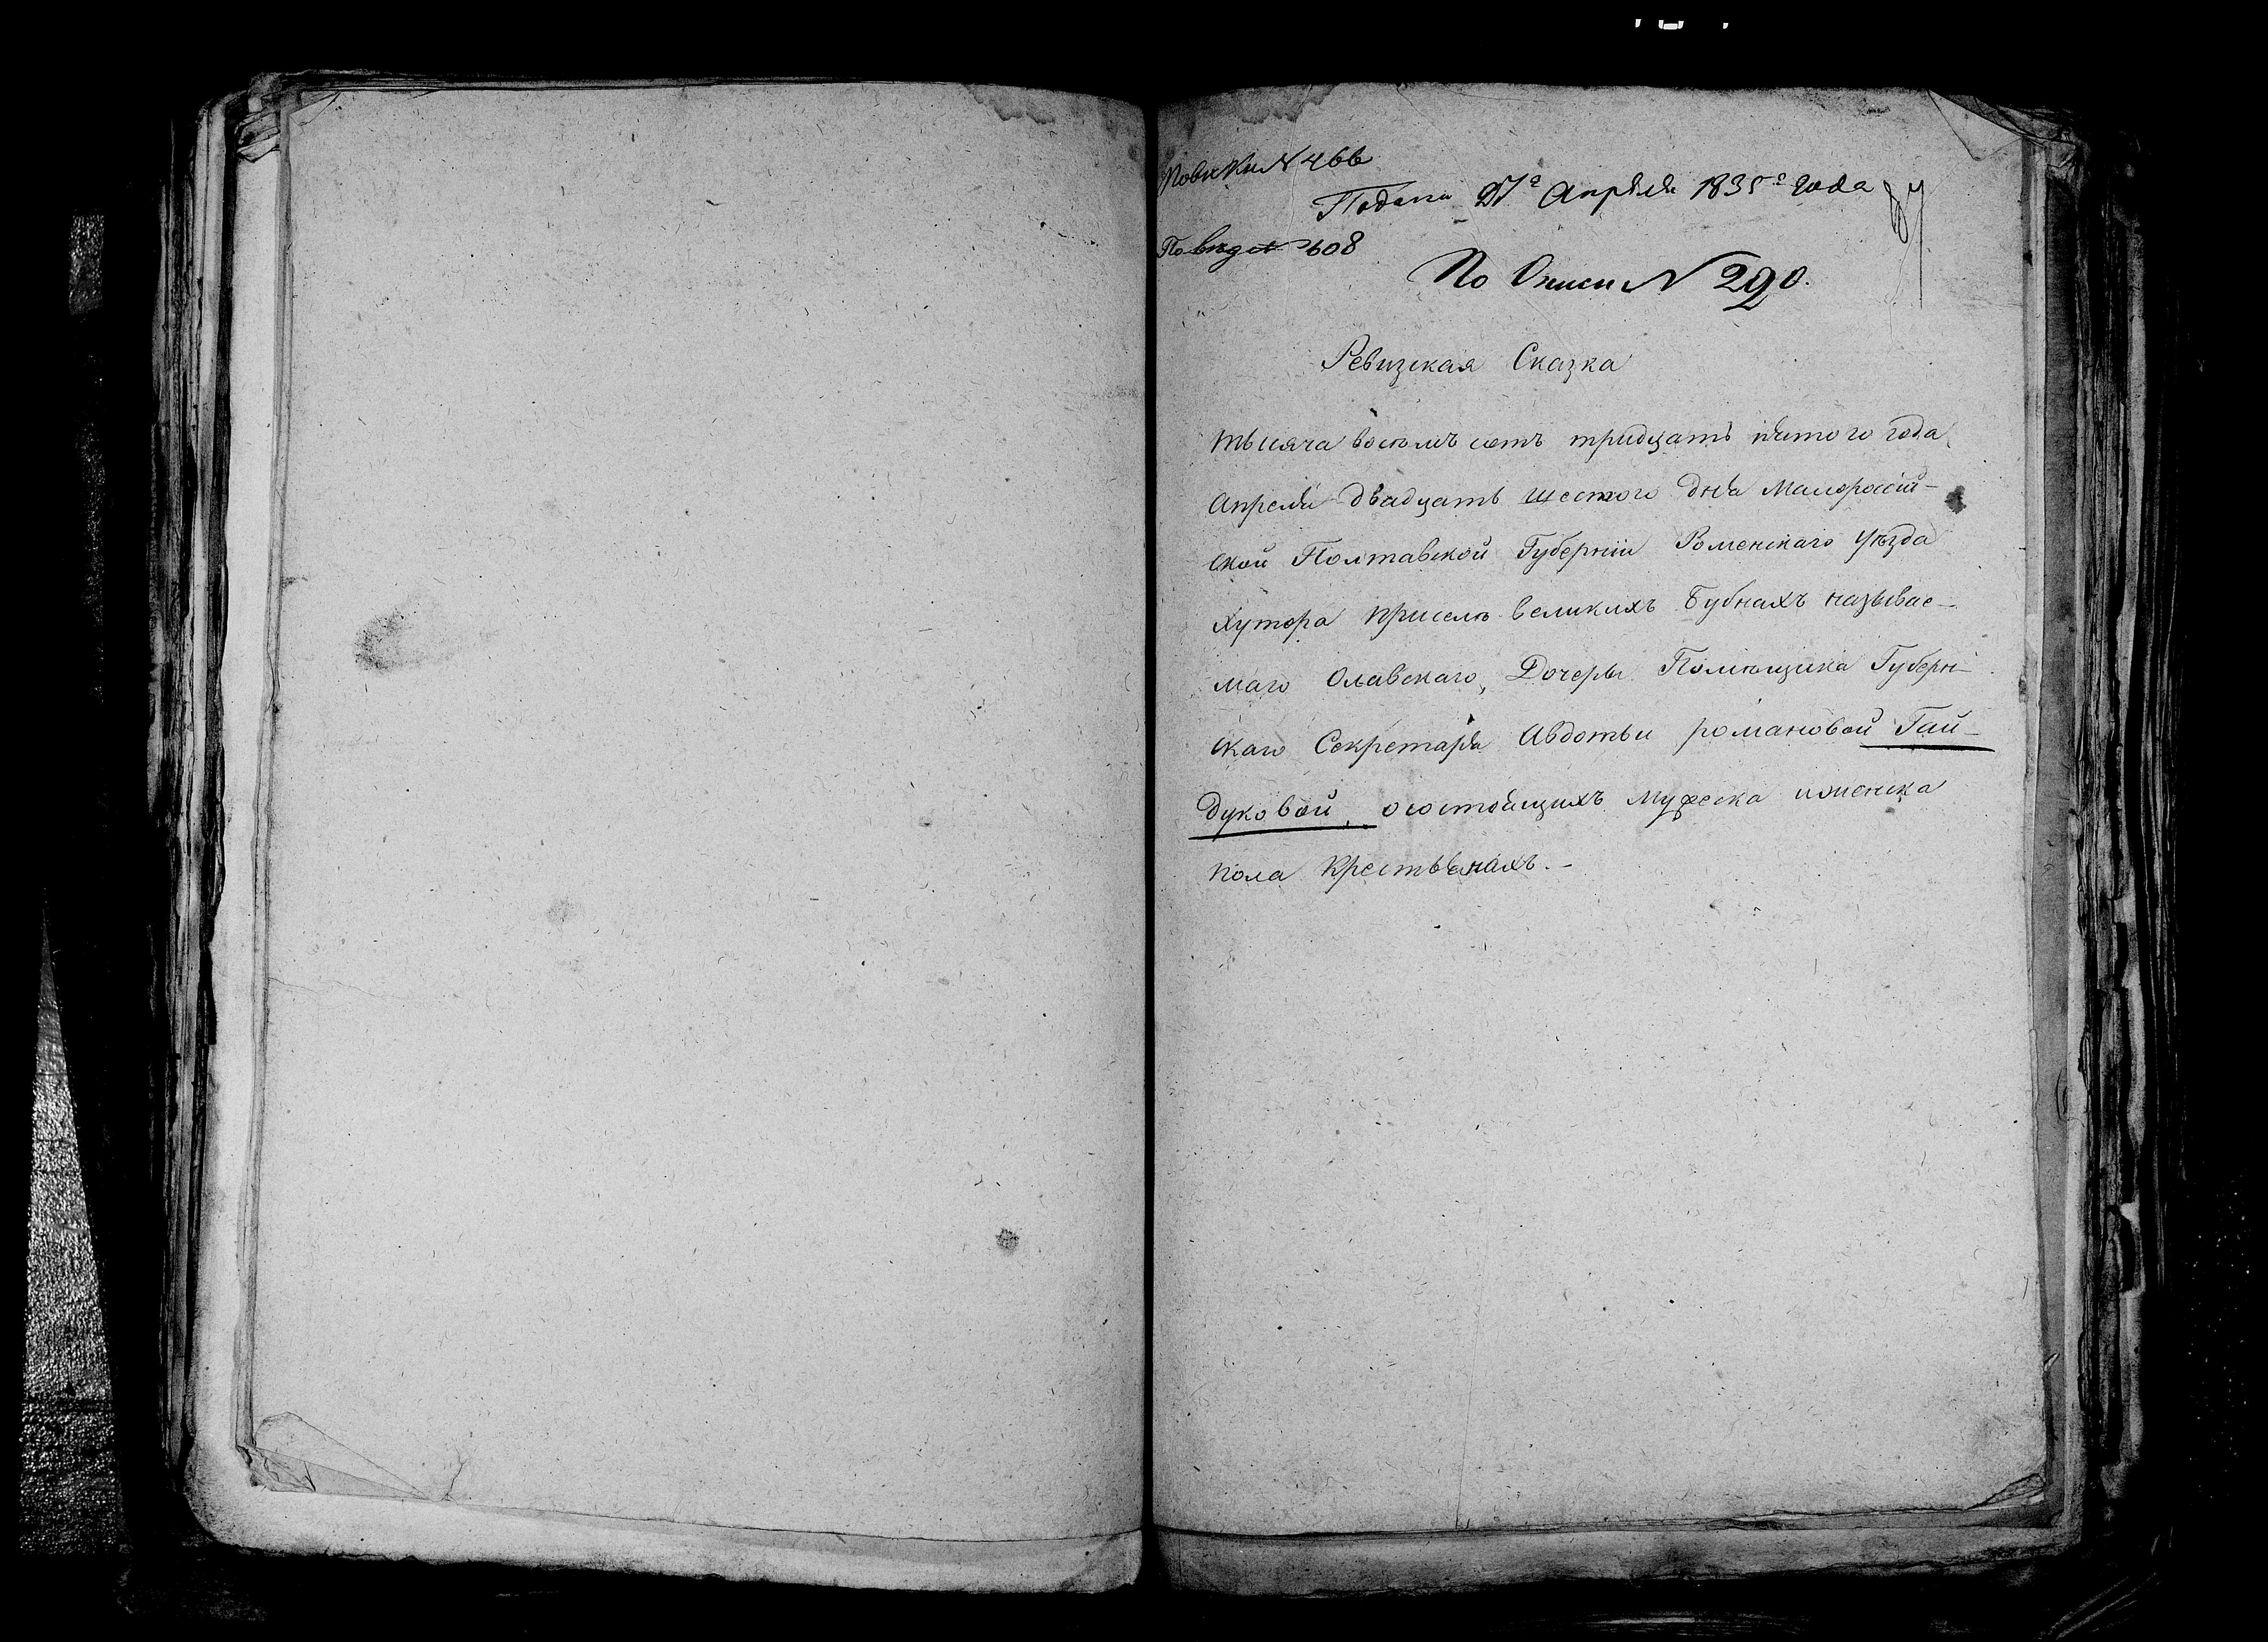 № 466
Подана 27го Апреля 1835го года
По № 608
По Описи № 290.
Ревизская Сказка
тысяча восемъ сотъ тридцать пятого года
Апреля двадцать шестого дня Малороссій-
ской Полтавской Губерніи Роменскаго Уѣзда
Хутора приселѣ великихъ Бубнахъ называе-
маго Олавскаго, Дочеры Помѣщика Губерн-
скаго Секретаря Авдотьи романовой Гай-
дуковой, осостоящихъ мужеска иженска
пола крестьянахъ.-